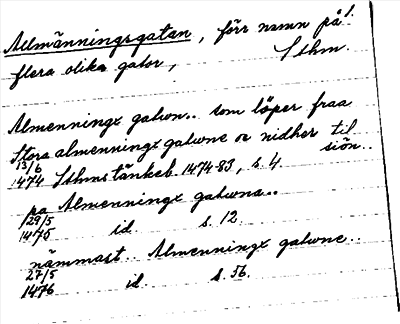 Allmänningsgatan, förr namn på
flera olika gator, Sthm.
Almenningx gatwn.. som löper fraa
Stora almenningx gatwne oc nidher til
siön..
13/6
1474 Sthms tänkeb. 1474-83, s. 4.
pa Almenningx gatwna..
29/5
1475 id. s. 12
nämmast.. Almenningx gatwne..
27/5
1476 id. s. 56.